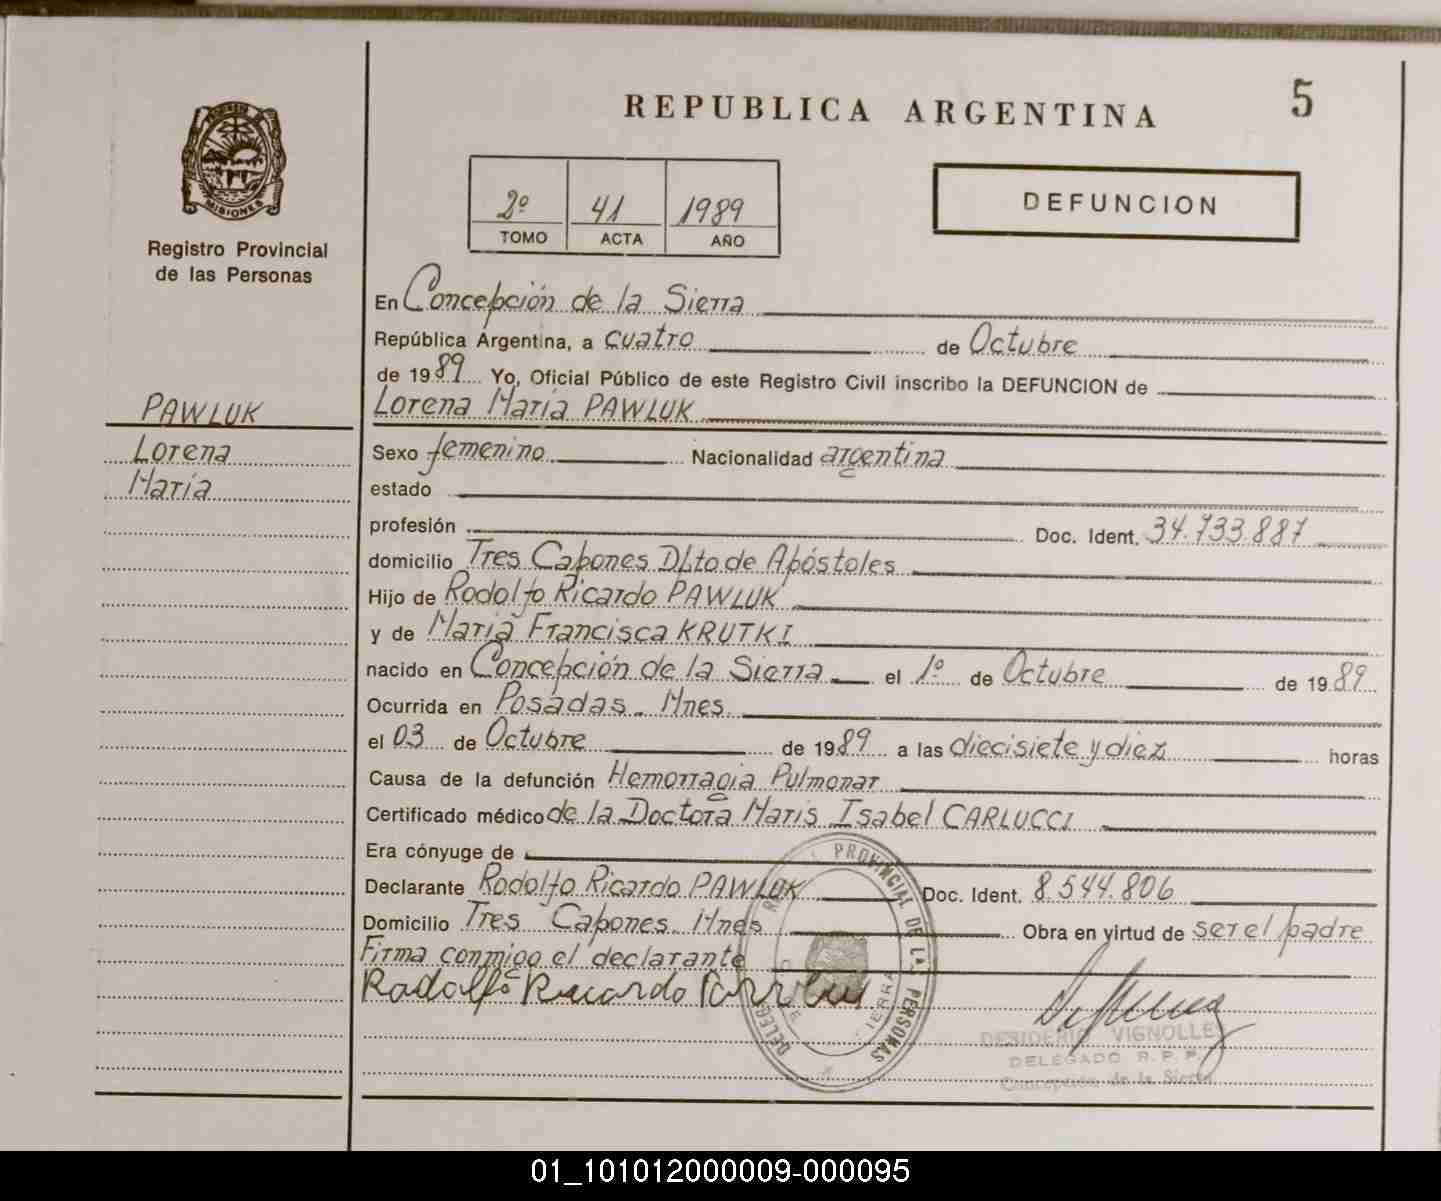 REPUBLICA ARGENTINA
5
MISIONES
Registro Provincial
de las Personas
2º 41 1989
TOMO ACTA AÑO
DEFUNCION
PAWLUK
Lorena
María
En Concepción de la Sierra
República Argentina, a cuatro de Octubre
de 1989 Yo, Oficial Público de este Registro Civil inscribo la DEFUNCION de
Lorena María PAWLUK
Sexo femenino Nacionalidad argentina
estado
profesión Doc. Ident. 34.733.887
domicilio Tres Capones DLto de Apóstoles
Hijo de Rodolfo Ricardo PAWLUK
y de María Francisca KRUTKI
nacido en Concepción de la Sierra el 1º de Octubre de 1989
Ocurrida en Posadas Mnes
el 03 de Octubre de 1989 a las diecisiete y diez horas
Causa de la defunción Hemorragia Pulmonar
Certificado médico de la Doctora Maris Isabel CARLUCCI
Era cónyuge de
Declarante Rodolfo Ricardo PAWLUK Doc. Ident. 8.544.806
Domicilio Tres Capones. Mnes Obra en virtud de ser el padre
Firma conmigo el declarante
Rodolfo Ricardo
PROVINCIAL DE LAS PERSONAS
SIERRA
DESIDERIO VIGNOLLES
DELEGADO R. P. P.
Concepción de la Sierra
01_101012000009-000095